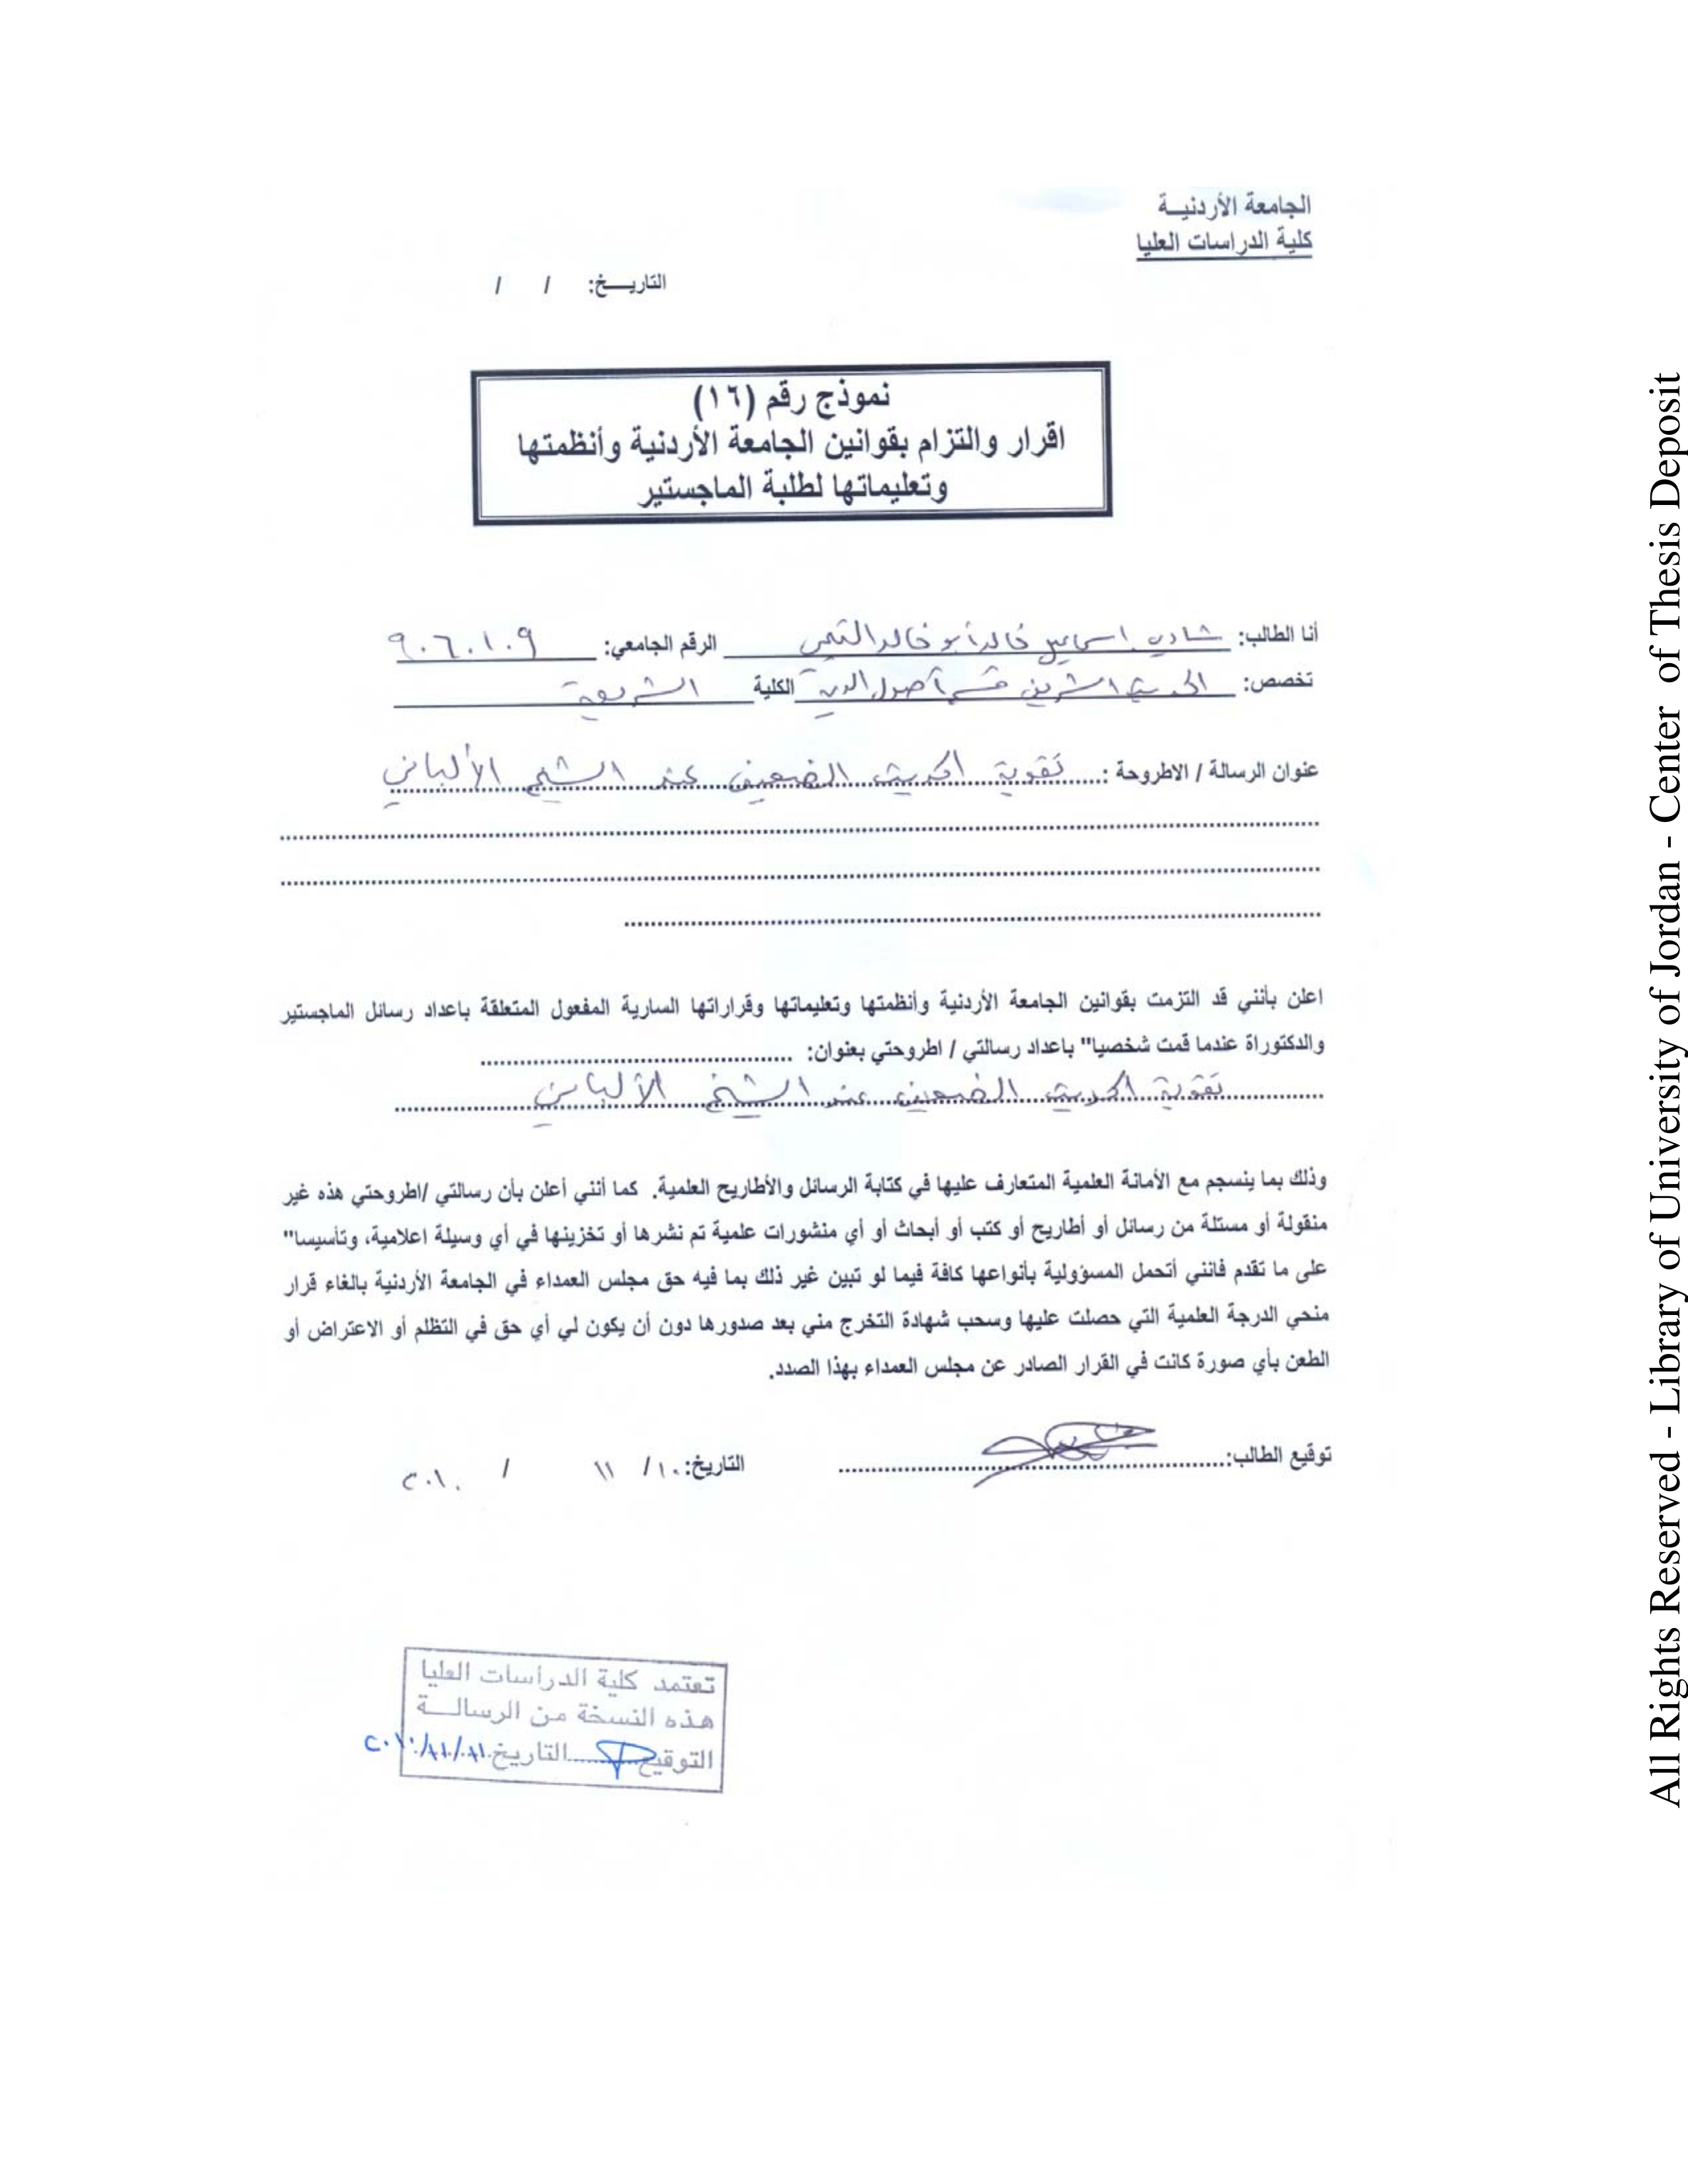 الجامعة الأردنيـــة
كلية الدراسات العليا
التاريـــخ: / /
نموذج رقم (١٦)
اقرار والتزام بقوانين الجامعة الأردنية وأنظمتها
وتعليماتها لطلبة الماجستير
أنا الطالب: شادي اسماعيل خالد أبو خالد التميمي الرقم الجامعي: ٩٠٦٠١٠٩
تخصص: الحديث الشريف قسم أصول الدين الكلية الشريعة
عنوان الرسالة / الاطروحة : تقوية الحديث الضعيف عند الشيخ الألباني
اعلن بأنني قد التزمت بقوانين الجامعة الأردنية وأنظمتها وتعليماتها وقراراتها السارية المفعول المتعلقة باعداد رسائل الماجستير
والدكتوراة عندما قمت شخصيا" باعداد رسالتي / اطروحتي بعنوان:
تقوية الحديث الضعيف عند الشيخ الألباني
وذلك بما ينسجم مع الأمانة العلمية المتعارف عليها في كتابة الرسائل والأطاريح العلمية. كما أنني أعلن بأن رسالتي /اطروحتي هذه غير
منقولة أو مستلة من رسائل أو أطاريح أو كتب أو أبحاث أو أي منشورات علمية تم نشرها أو تخزينها في أي وسيلة اعلامية، وتأسيسا"
على ما تقدم فانني أتحمل المسؤولية بأنواعها كافة فيما لو تبين غير ذلك بما فيه حق مجلس العمداء في الجامعة الأردنية بالغاء قرار
منحي الدرجة العلمية التي حصلت عليها وسحب شهادة التخرج مني بعد صدورها دون أن يكون لي أي حق في التظلم أو الاعتراض أو
الطعن بأي صورة كانت في القرار الصادر عن مجلس العمداء بهذا الصدد.
توقيع الطالب: التاريخ: ١٠/ ١١ / ٢٠١٠
تعتمد كلية الدراسات العليا
هذه النسخة من الرسالـــة
التوقيع التاريخ
All Rights Reserved - Library of University of Jordan - Center of Thesis Deposit